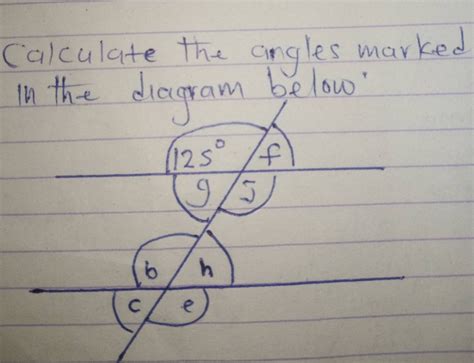 Calculate the angles marked
in the diagram below.
125° f
g j
b h
c e